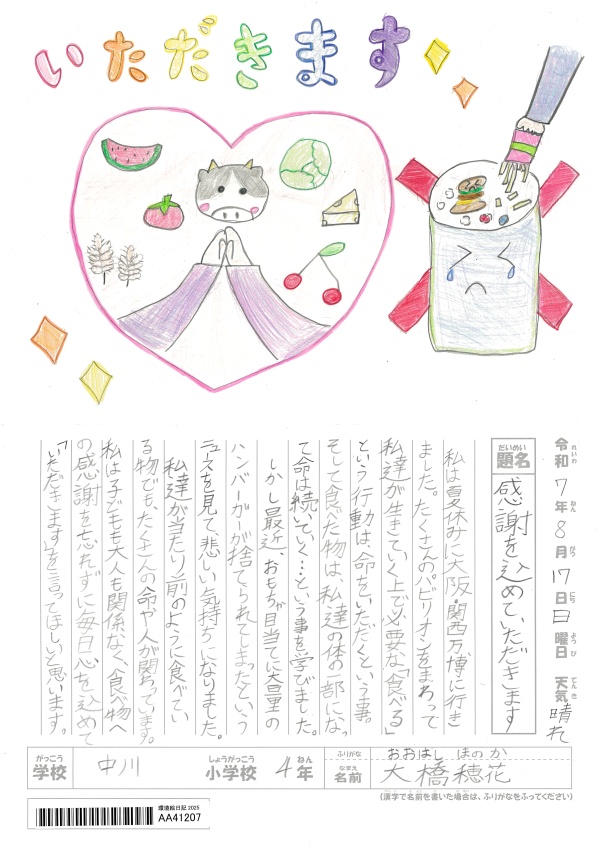 いただきます
令和7年8月17日日曜日 天気 晴れ
れいわ ねん がつ にち ようび てんき
だいめい
題名 感謝を込めていただきます
私は夏休みに大阪・関西万博に行き
ました。たくさんのパビリオンをまわって
私達が生きていく上で必要な「食べる」
という行動は命をいただくという事。
そして食べた物は、私達の体の一部になっ
て命は続いていく…という事を学びました。
しかし最近、おもちゃ目当てに大量の
ハンバーガーが捨てられてしまったという
ニュースを見て悲しい気持ちになりました。
私達が当たり前のように食べてい
る物でも、たくさんの命や人が関わっています。
私は子どもも大人も関係なく、食べ物へ
の感謝を忘れずに毎日心を込めて
「いただきます」を言ってほしいと思います。
がっこう しょうがっこう ねん ふりがな おおはし ほのか
学校 中川 小学校 4年 なまえ 名前 大橋穂花
(漢字で名前を書いた場合は、ふりがなをふってください)
環境絵日記 2025
AA41207